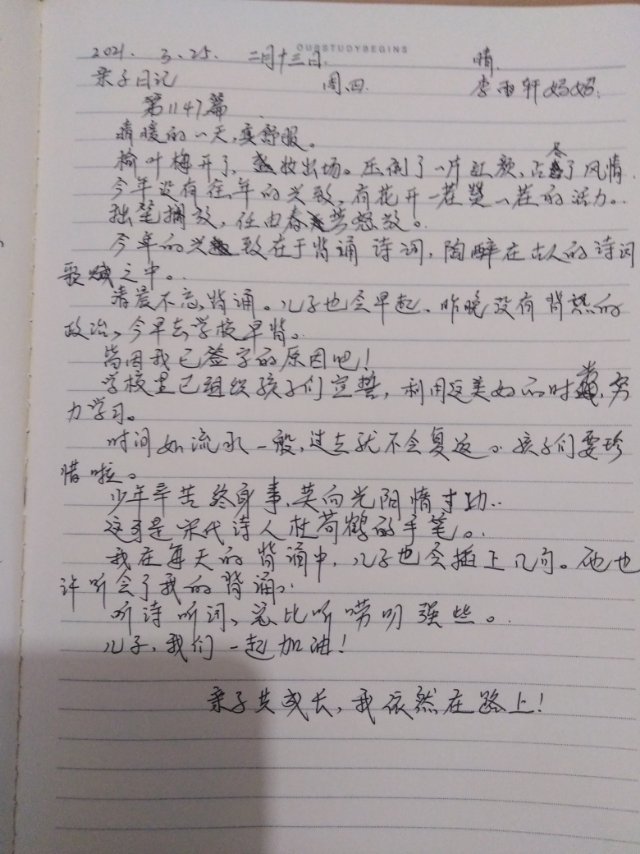 OURSTUDYBEGINS
2021. 3.25. 二月十三日. 晴.
亲子日记 周四. 李雨轩妈妈.
第1147篇.
清暖的一天,真舒服。
榆叶梅开了,盛妆出场。压倒了一片红颜,占尽了风情.
今年没有往年的兴致,有花开一茬赞一茬的活力。
拙笔捕放,任由春芳怒放。
今年的兴致在于背诵诗词,陶醉在古人的诗词
歌赋之中。
清晨不忘背诵。儿子也会早起、昨晚没有背熟的
政治、今早去学校早背。
皆因我已签字的原因吧!
学校里已组织孩子们宣誓,利用这美好的时光,努
力学习。
时间如流水一般,过去就不会复返。孩子们要珍
惜啦。
少年辛苦终身事,莫向光阴惰寸功..
这可是宋代诗人杜荀鹤的手笔。
我在每天的背诵中,儿子也会插上几句。他也
许听会了我的背诵。
听诗听词、总比听唠叨强些。
儿子,我们一起加油!
亲子共成长,我依然在路上!